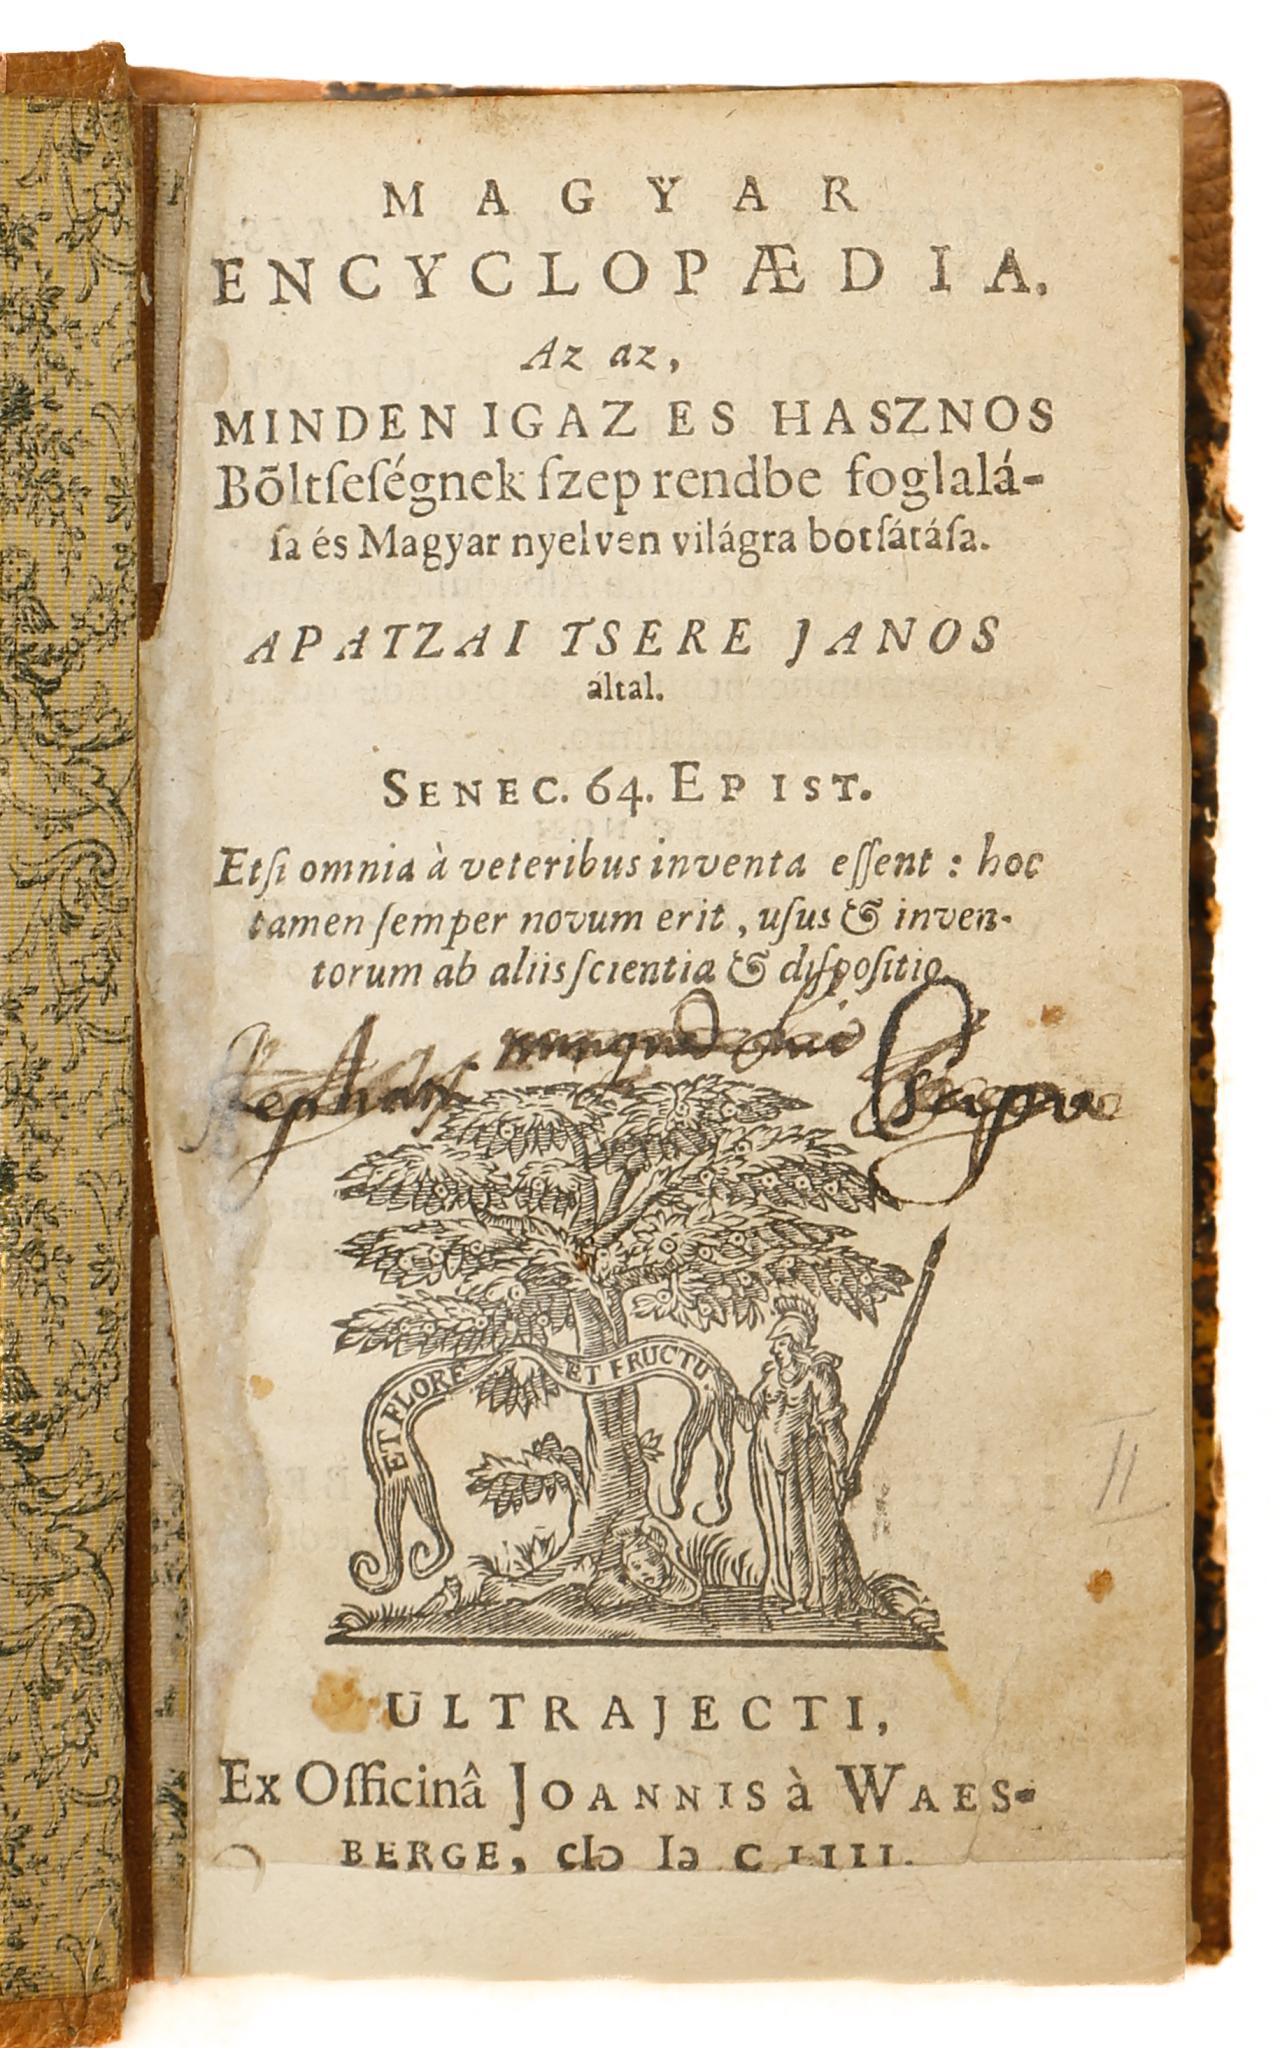 MAGYAR
ENCYCLOPÆDIA.
Az az,
MINDEN IGAZ ES HASZNOS
Bõltſeſégnek ſzep rendbe foglalá-
ſa és Magyar nyelven világra botſátáſa.
APATZAI TSERE JANOS
által.
SENEC. 64. EPIST.
Etſi omnia à veteribus inventa eſſent : hoc
tamen ſemper novum erit, uſus & inven-
torum ab aliis ſcientia & diſpoſitio.
ET FLORE ET FRUCTU.
ULTRAJECTI,
Ex Officinâ JOANNIS à WAES-
BERGE, cIɔ Iɔ CLIII.
II